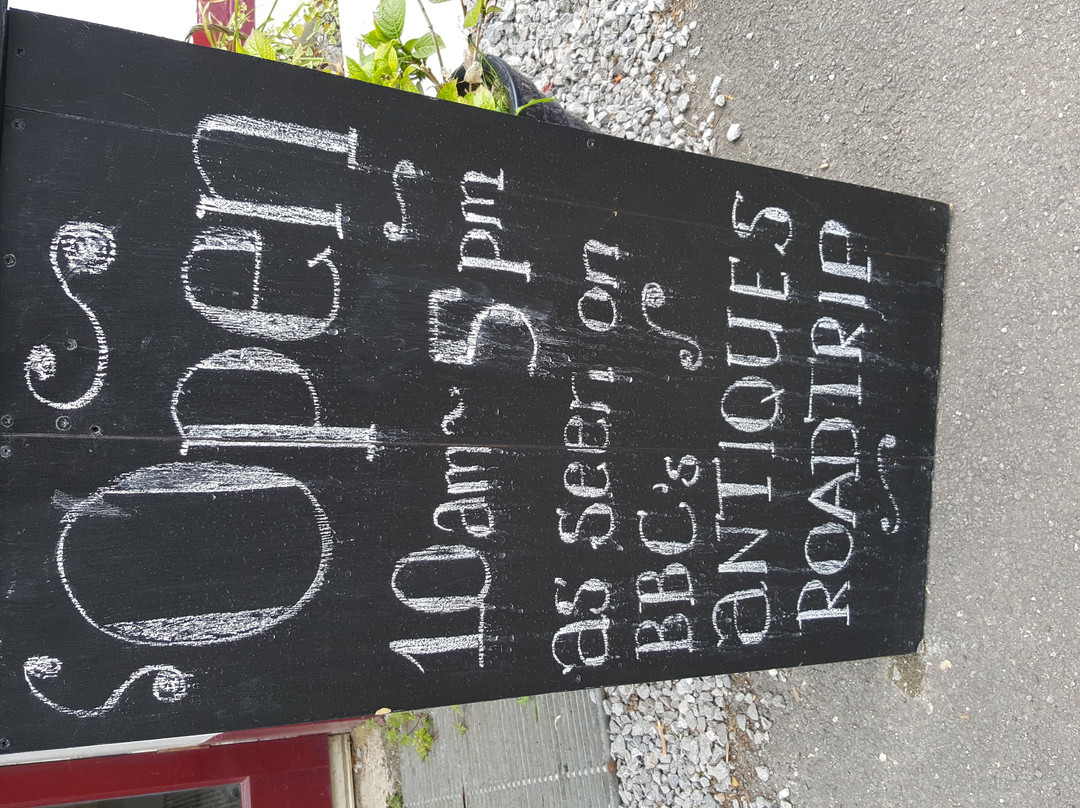 Open
10am ~ 5pm
as seen on
BBC's
aNTIQUES
ROADTRIP